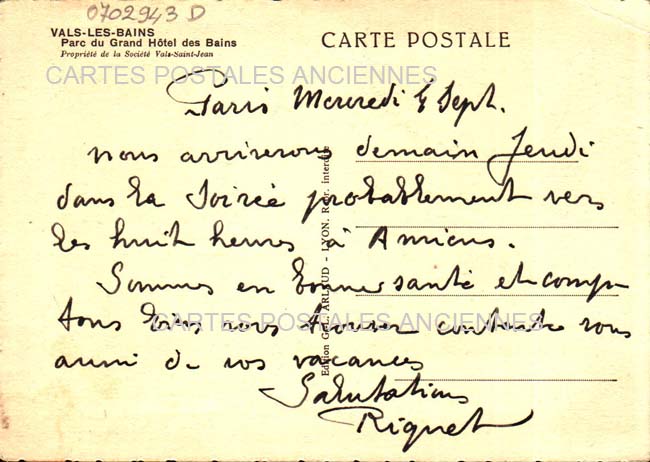 0702943 D
VALS-LES-BAINS
Parc du Grand Hôtel des Bains
Propriété de la Société Vals-Saint-Jean
CARTE POSTALE
CARTES POSTALES ANCIENNES
Paris Mercredi 4 Sept.
nous arriverons demain Jeudi
dans la soirée probablement vers
les huit heures à Amiens.
Sommes en bonne santé et comp
tons bien vous trouver contents vous
CARTES POSTALES ANCIENNES
aussi de vos vacances
Salutations
Riquet
Edition Gén. ARLAUD - LYON. Repr. interdite